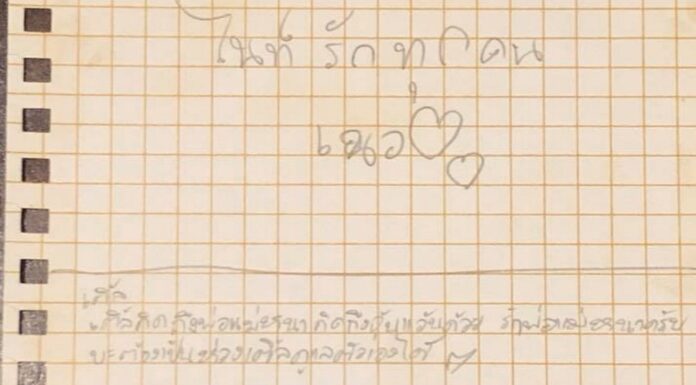 ไนท์ รักทุกคน
เนอ
เติ้ล
เติ้ลคิดถึงพ่อแม่ คิดถึง ด้วย รักพ่อแม่
ต้องเป็นห่วงเติ้ลดูแลตัวเองได้